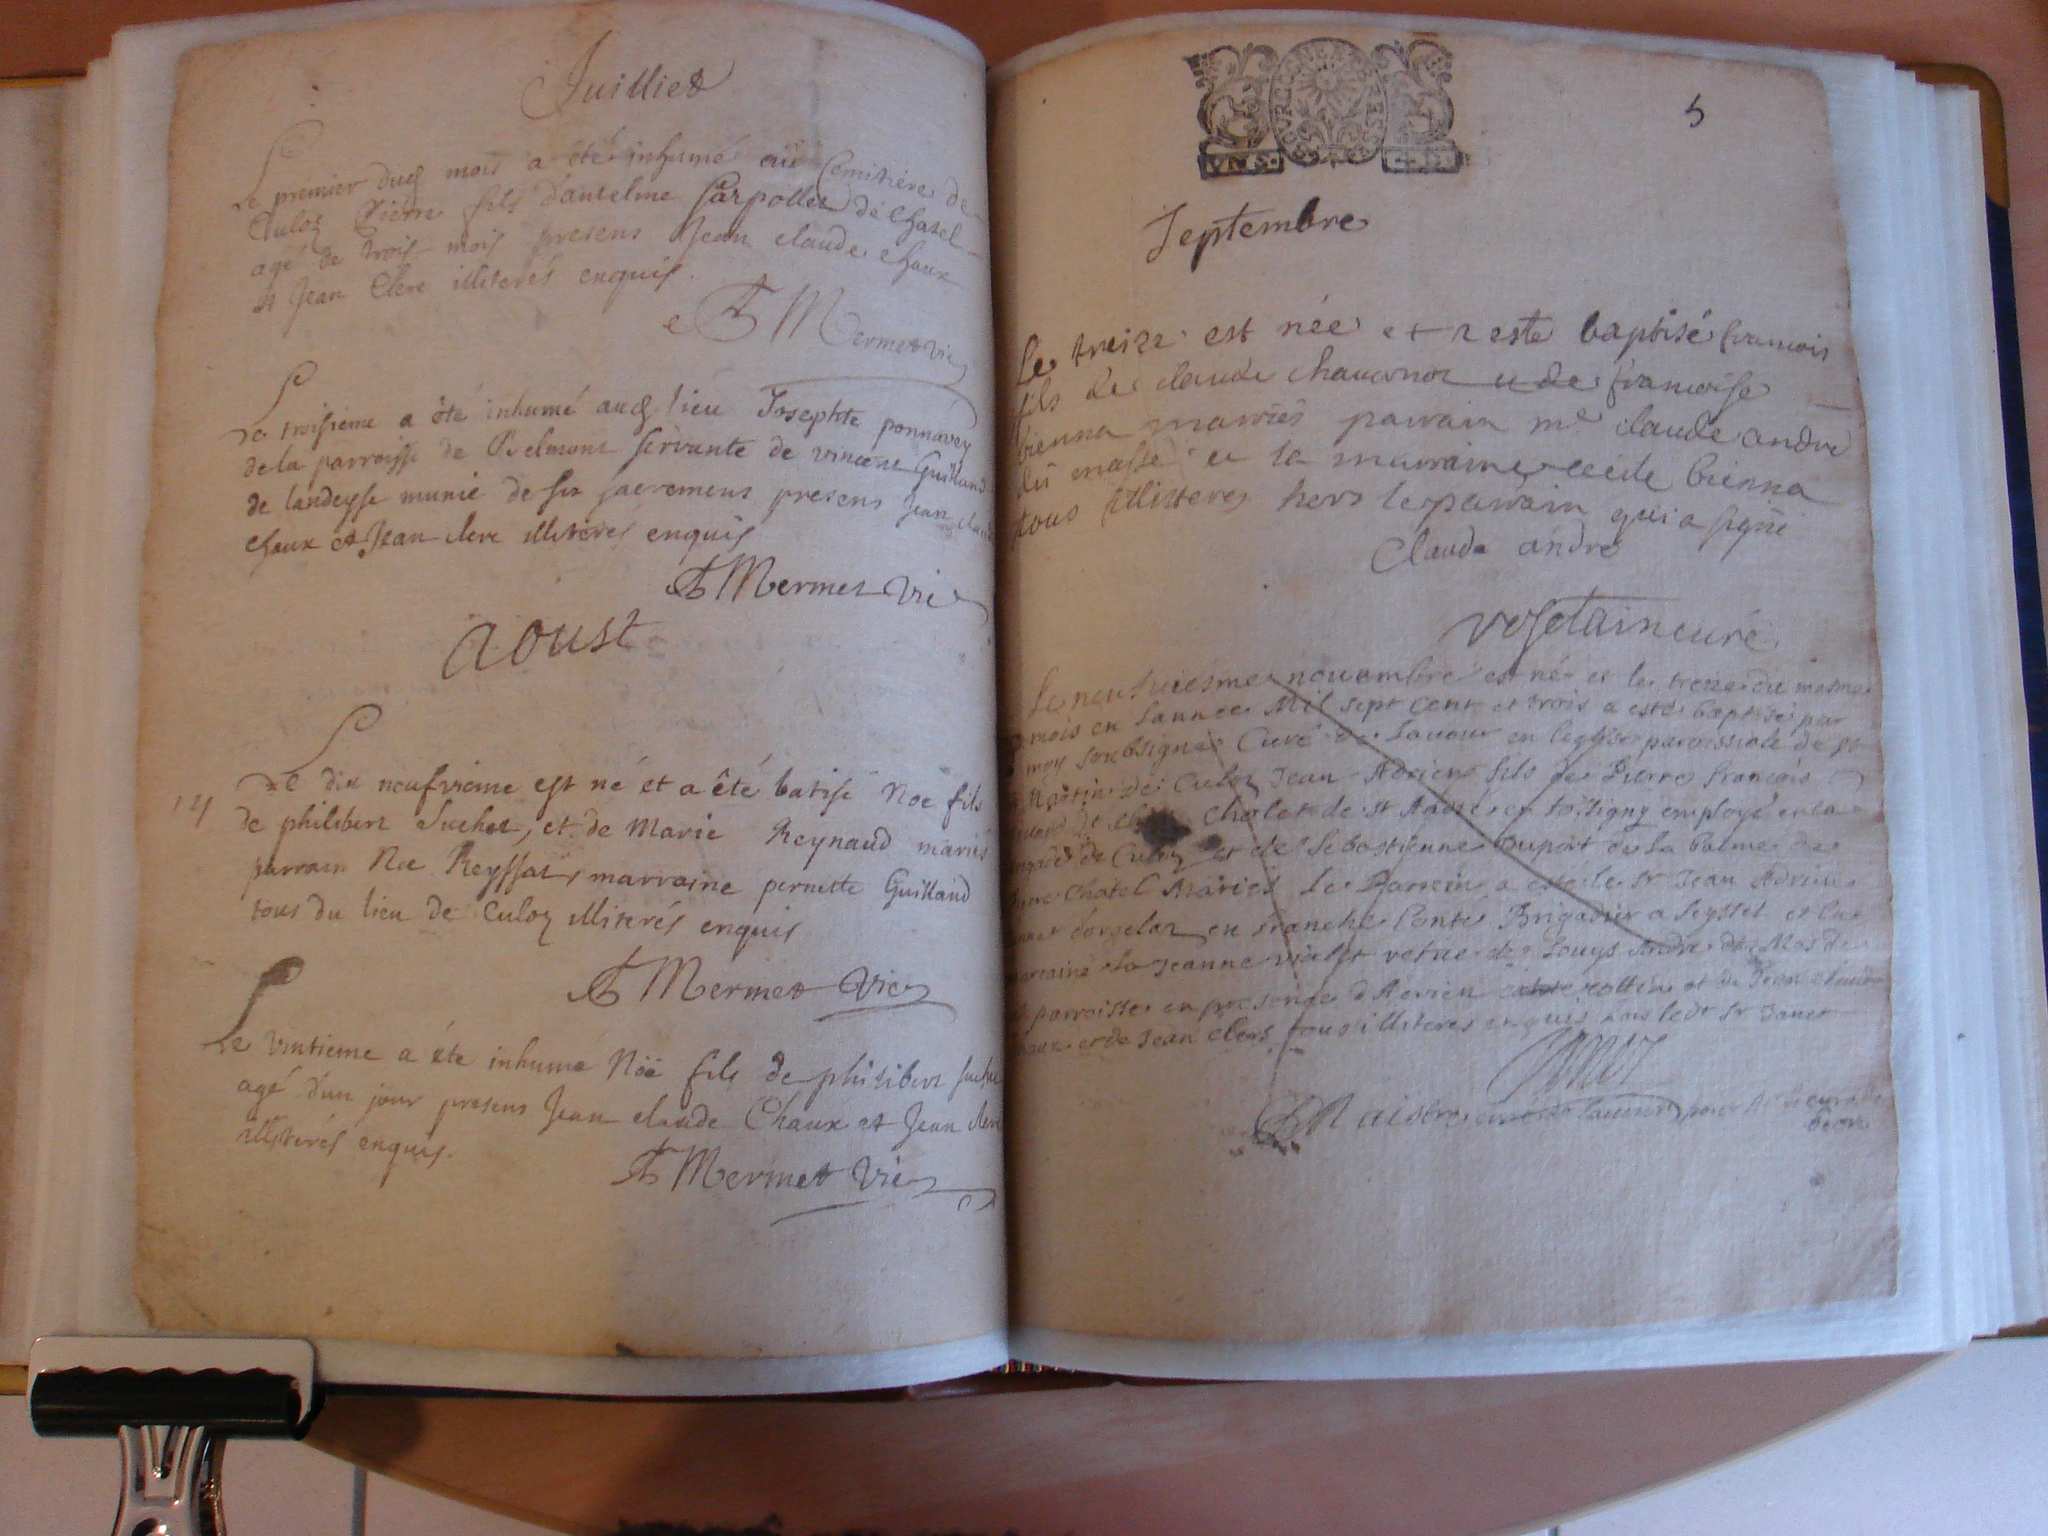 Juillied
Le premier dud mois a été inhumé au Cemitiére de
Culoz Pierre fils d'anselme Carpollet de Chatel
agé de trois mois presens Jean claude chaux
et Jean Clere illiterés enquis.
Mermet vic
Le troisieme a été inhumé aud lieu Josephte ponnavey
de la parroisse de Belmont servante de vincent Guilland
de landeyse munie de ses sacremens presens Jean claude
chaux et Jean clere illiterés enquis
Mermet vic
Aoust
Le dix neufvieme est né et a êté batisé Noe fils
de philibert Suchet, et de Marie Reynaud mariés
parrain Noe Reyssat, marraine pernette Guilland
tous du lieu de Culoz illiterés enquis
Mermet vic
Le vintieme a éte inhumé Nöe fils de philibert suchet
agé d'un jour presens Jean claude Chaux et Jean clere
illiterés enquis.
Mermet vic
5
Septembre
Le treize est née et a esté baptisé francois
fils de claude chauanot et de francoise
bienna mariés parrain me claude andre
du masse et la marraine cecile bienna
tous illiteres hors le parrain qui a signé
Claude andre
vosetain curé
Le neufuiesme nouembre est né et le treze du mesme
mois en lannee Mil sept cent et trois a esté baptisé par
moy soubsigné Curé de Lauour en leglise parroissiale de st
Martin de Culoz Jean Adrien fils de Pierre francois
Cholet de st André en employé en la
de Culoz et de Sebastienne Dupont de la balme de
Chatel Mariés le Parrein a esté le sr Jean Adrien
dorgelat en franche Conté Brigadier a Seyssel et la
marraine la Jeanne vefue de Louys Andre du Mas de
parroisse en presence d'Adrien et de Jean claude
chaux et de Jean clere tous illiteres enquis hors ledt sr Janet
Janet
Maistre curé de Lauour pour